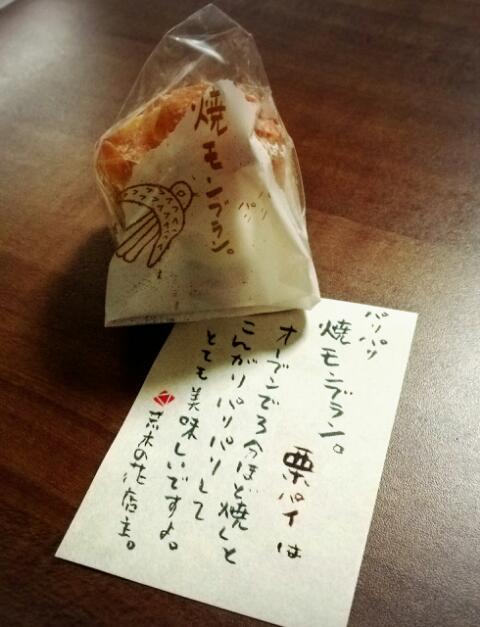 焼モンブラン。
パリ
パリ
パリパリ
焼モンブラン。
栗パイは
オーブンで3分ほど焼くと
こんがりパリパリして
とても美味しいですよ。
菓木の花店主。